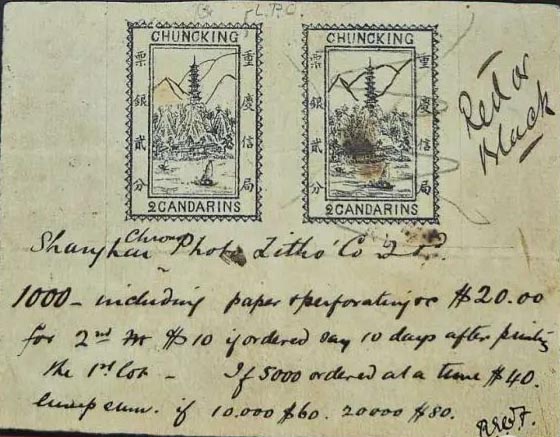 L.P.O.
CHUNCKING
重慶信局
票銀貳分
2 CANDARINS
CHUNCKING
重慶信局
票銀貳分
2 CANDARINS
Red or
Black
Shanghai Chromo Photo Litho' Co Ld.
1000 - including paper & perforating &c $20.00
for 2nd M $10 if ordered say 10 days after printing
the 1st lot - If 5000 ordered at a time $40.
lump sum. if 10.000 $60. 20000 $80.